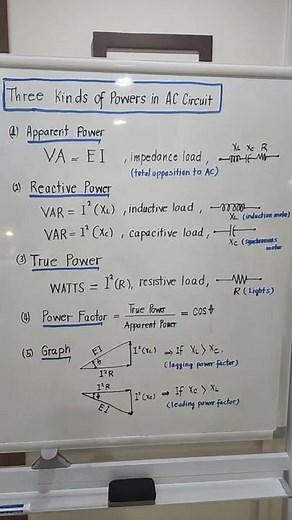 Three Kinds of Powers in AC Circuit
(1) Apparent Power
XL XC R
VA = EI , impedance load,
(total opposition to AC)
(2) Reactive Power
VAR = I²(XL) , inductive load,
XL (induction motor)
VAR = I²(XC) , capacitive load,
XC (synchronous motor
(3) True Power
WATTS = I²(R), resistive load,
R (Lights)
(4) Power Factor = True Power / Apparent Power = cos ϕ
(5) Graph
EI I²(XL) ⇒ If XL > XC.
θ
I²R
(lagging power factor)
I²R
θ
EI I²(XC) ⇒ If XC > XL
(leading power factor)